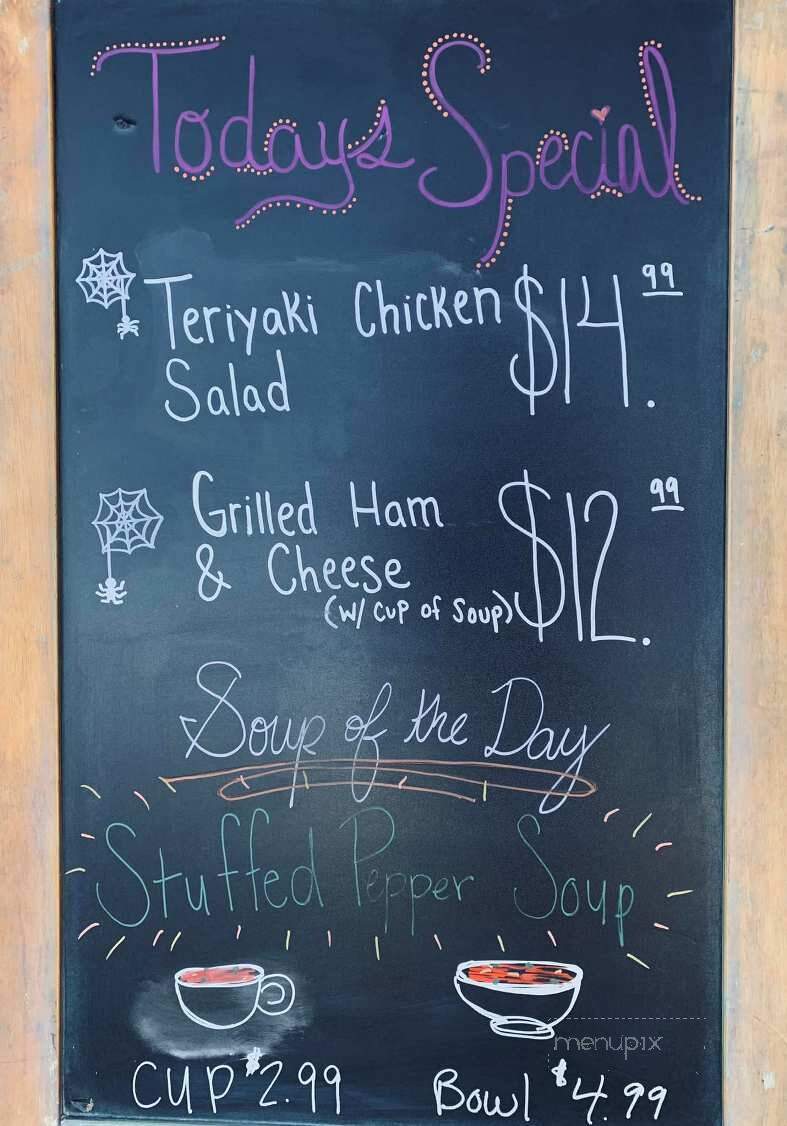 Todays Special
Teriyaki Chicken $14.99
Salad
Grilled Ham $12.99
& Cheese
(w/ cup of soup)
Soup of the Day
Stuffed Pepper Soup
CUP $2.99 Bowl $4.99
menupix